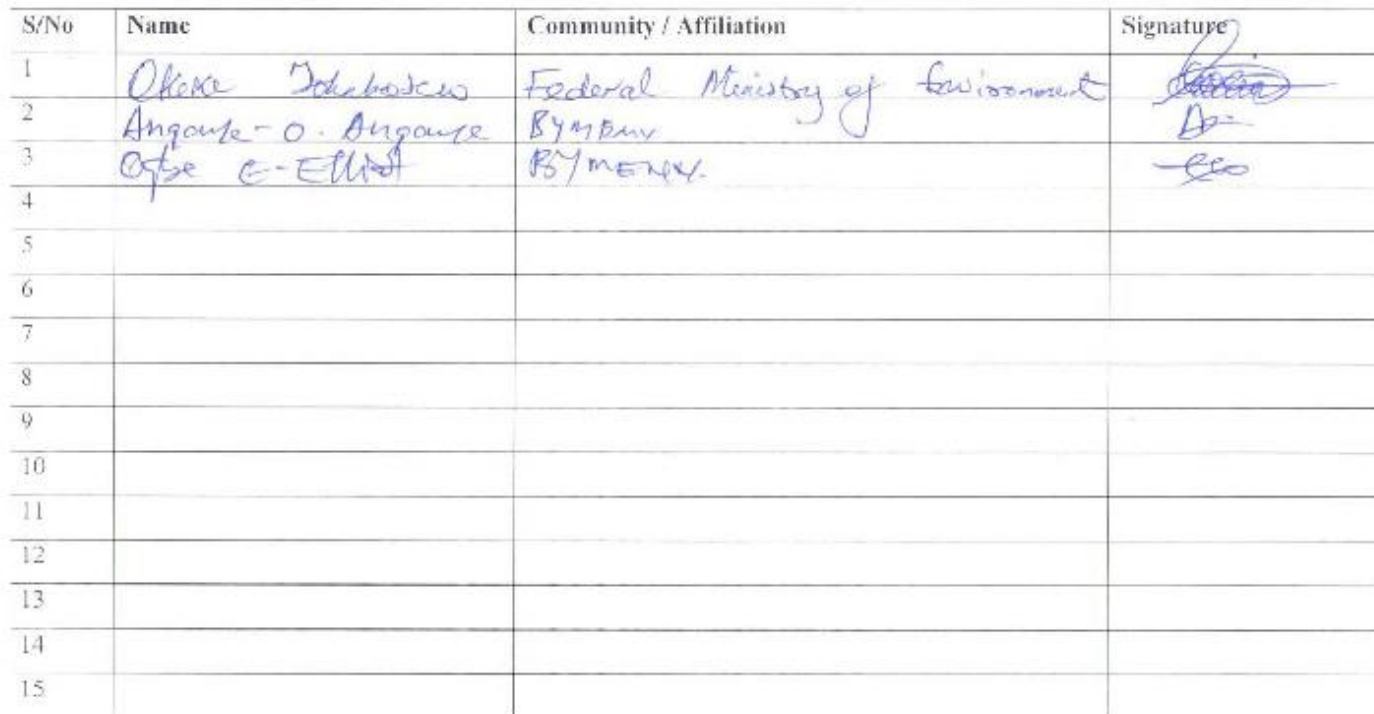 S/No Name Community / Affiliation Signature
1 Okeke Federal Ministry of Environment
2 Angaye-o. Angaye BYMENV
3 Ogbe E-Elliot BYMENV.
4
5
6
7
8
9
10
11
12
13
14
15